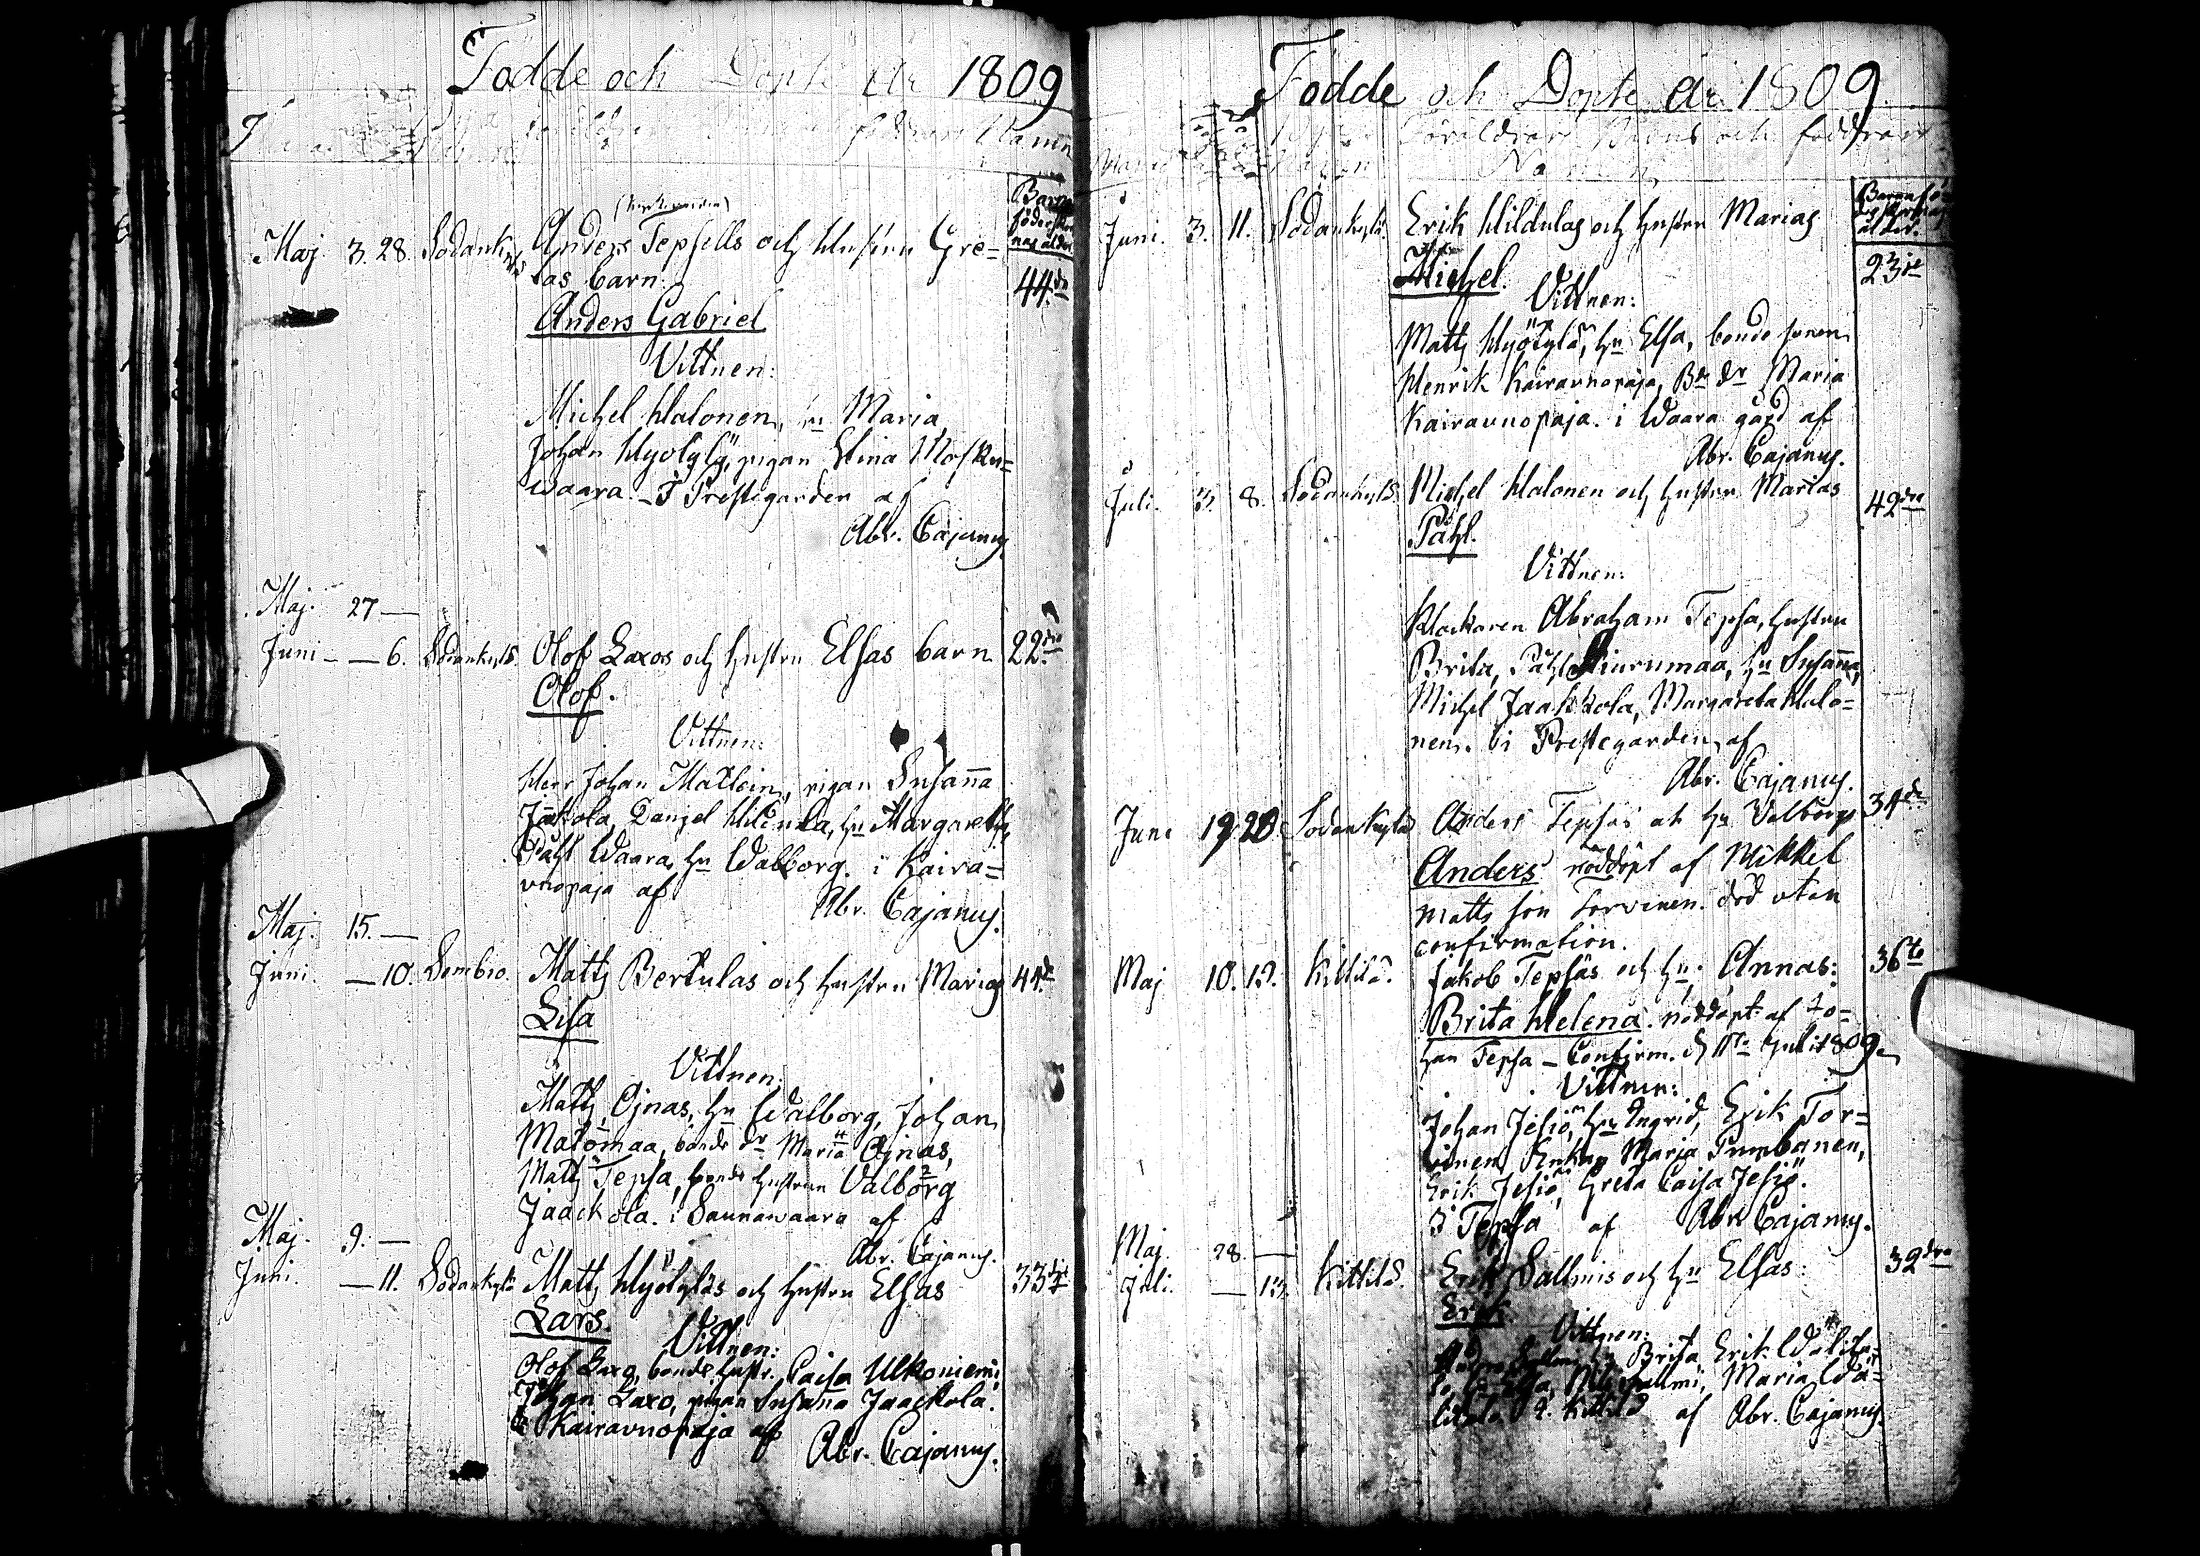 Födde och Döpte År 1809
Namn
Barna
föderskor
nas ålder
Maj. 3. 28. Sodankylä Anders Tepsells och Hustru Gre=
tas barn. 44.de
Anders Gabriel
Vittnen:
Michel Halonen, hu Maria,
Johan Hyötylä, pigan Elina Mosku=
waara. I Prestegården af
Abr. Cajanus.
Maj. 27 —
Juni — — 6. Sodankylä. Olof Laxos och hustru Elsas barn 22.dra
Olof.
Vittnen:
Herr Johan Matlein, pigan Susanna
Jaakola, Daniel Hiltula, hu Margaretha,
Påhl Waara, hu Walborg. i Kaira=
vuopaja af
Abr. Cajanus.
Maj. 15. —
Juni. — 10. Sombio. Matts Bertulas och hustru Marias 44.de
Lisa
Vittnen:
Matts Ojnas, hu Walborg, Johan
Malomaa, bonde dr Maria Ojnas,
Matts Tepsa, bonde hustrun Valborg
Jaackola. i Saunawaara af
Abr. Cajanus.
Maj. 9. —
Juni. — 11. Sodankylä Matts Hyötyläs och hustru Elsas 33dje
Lars.
Vittnen:
Olof Laxo, bonde hustr. Caisa Ulkoniemi,
Johan Laxo, pigan Susanna Jaackola.
Kairavuopaja af
Abr. Cajanus.
Födde och Döpte År 1809
Föräldrars, Barns och faddrars
Namn
Barnaföder
ålder.
Juni. 3. 11. Sodankylä. Erik Hildulas och hustru Marias 23dje
Michel.
Vittnen:
Matts Hyötylä, hu Elsa, bonde sonen
Henrik Kairavuopaja, Be dr Maria
Kairavuopaja. i Waara gård af
Abr. Cajanus.
Juli. 3. 8. Sodankylä Michel Halonen och hustru Marias 42dra
Påhl.
Vittnen:
Klockaren Abraham Tepsa, hustru
Brita, Påhl Kiurumaa, hu Susanna,
Michel Jaakkola, Margareta Halo=
nen. i Prestegården af
Abr. Cajanus.
Juni 19 20 Sodankylä Anders Tepsas och hu Valborgs 34de
Anders nöddöpt af Mikkel
Matts son Torvinen. död utan
confirmation.
Maj 10. 12. Kittilä. Jakob Tepsas och hu Annas: 36te
Brita Helena. nöddöpt af Jo=
han Tepsa — Confirm. d 11te Juli 1809.
Vittnen:
Johan Jesiö, hu Ingrid, Erik Tor=
vinen, Enkan Maria Pumbanen,
Erik Jesiö, Greta Caisa Jesiö.
I Tepsa af Abr. Cajanus.
Maj. 28. —
Juli. — 13. Kittilä. Erik Sallmis och hu Elsas: 32dra
Erik.
Vittnen:
Brita, Erik Walita=
Elsa, Maria Wa=
litalo. i Kittilä af Abr. Cajanus.